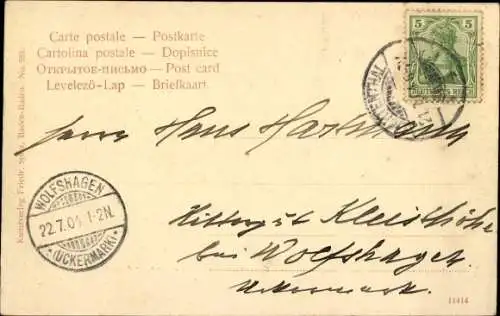 Carte postale — Postkarte
Cartolina postale — Dopisnice
Открытое-письмо — Post card
Levelező-Lap — Briefkaart
5 5
DEUTSCHES REICH
Herrn Hans Hartmann
WOLFSHAGEN
22.7.05 1-2N.
(UCKERMARK)
Rittergut Kleisthöhe
bei Wolfshagen
Uckermark
Kunstverlag Friedr. Baden-Baden. No.
11414